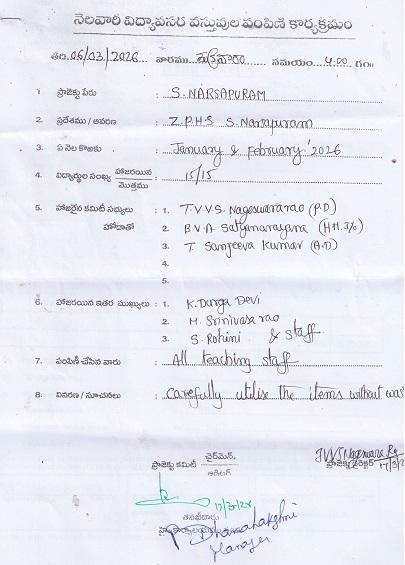 నెలవారీ విద్యావసర వస్తువుల పంపిణీ కార్యక్రమం
తేది. 06/03/2026 వారము శుక్రవారం సమయం 4.00 గం॥
1 ప్రాజెక్టు పేరు : S. NARSAPURAM
2. ప్రదేశము / ఆవరణ : Z.P.H.S S. Narsapuram
3. ఏ నెల కొఱకు : January & February '2026
4. విద్యార్థుల సంఖ్య హాజరయిన / మొత్తము : 15/15
5. హాజరైన కమిటీ సభ్యులు : 1. T.V.V.S. Nageswararao (P.D)
హోదాతో 2. B.V.A. Satyanarayana (H.M.
3. T. Sanjeeva Kumar (A.D)
4.
5.
6. హాజరయిన ఇతర ముఖ్యులు : 1. K. Durga Devi
2. M. Srinivasa rao
3. S. Rohini & staff
7. పంపిణీ చేసిన వారు : All teaching staff
8. వివరణ / సూచనలు : carefully utilise the items without
ప్రాజెక్టు కమిటీ ఛైర్మెన్, / ఆడిటర్
TVVS Nageswara Ra
ప్రాజెక్టు డైరెక్టర్
P. Dhanalakshmi
Manager